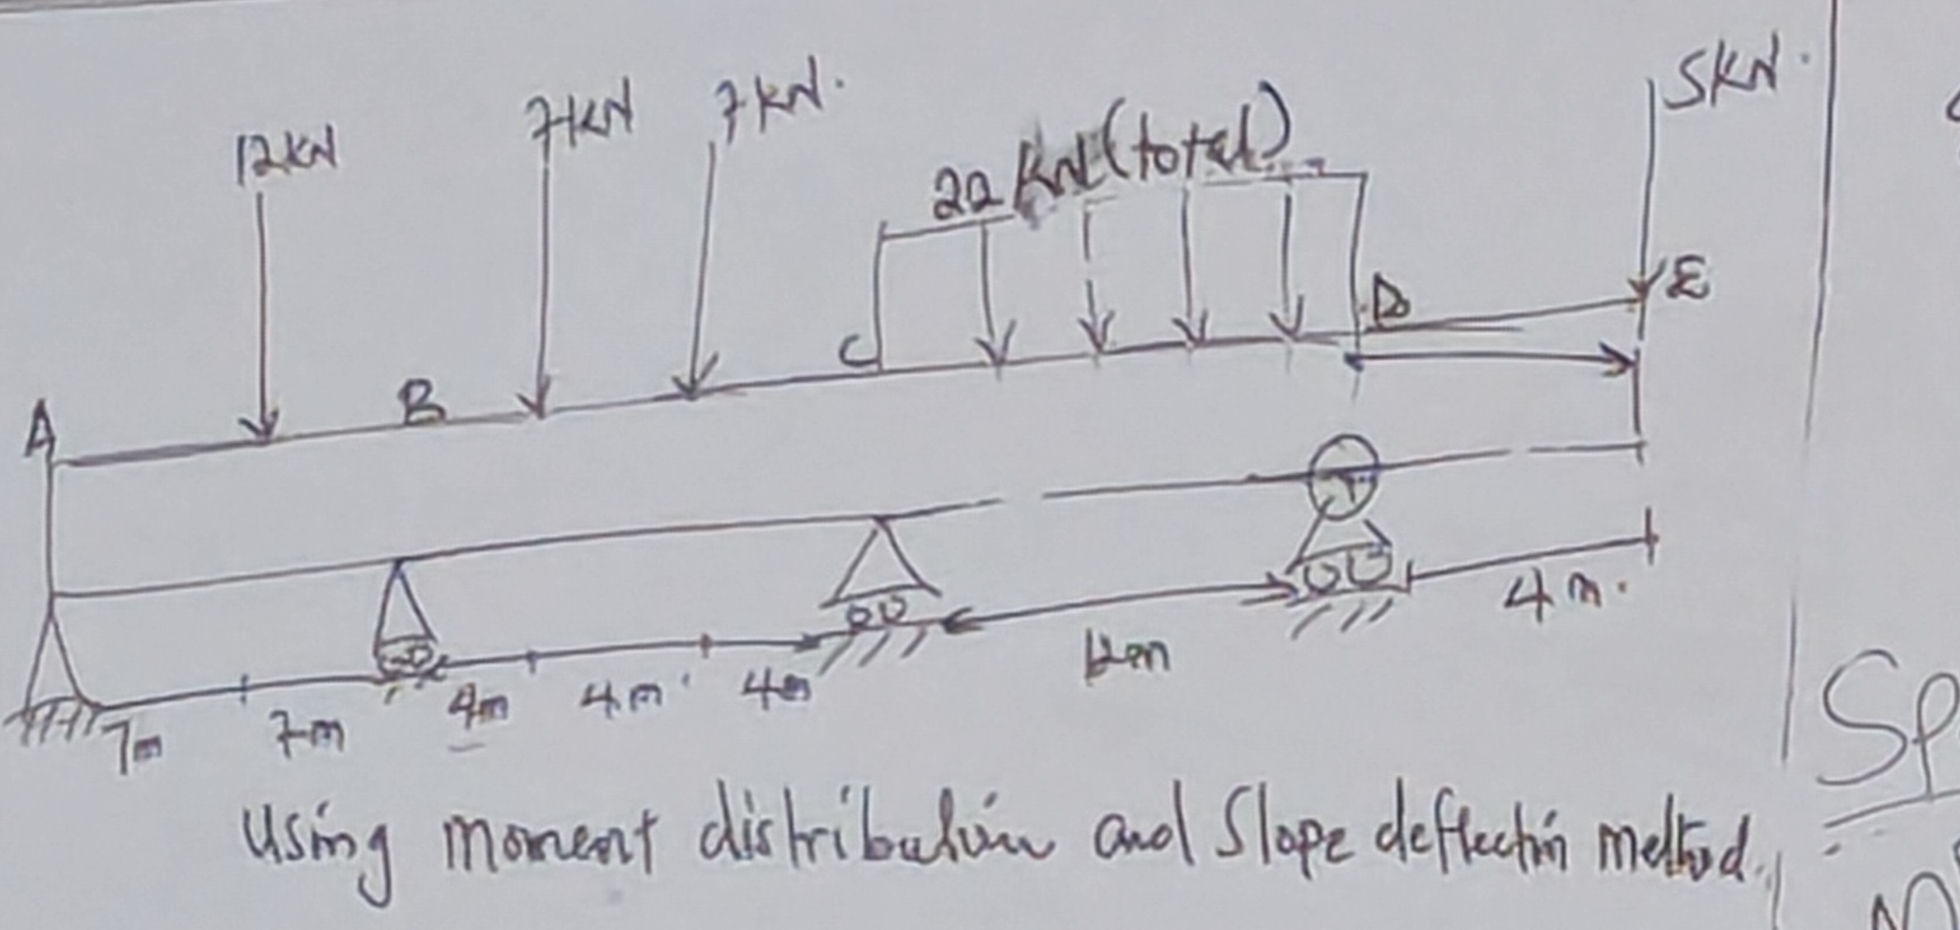 5KN.
7KN 7KN.
12KN
22 KN (total)
D E
C
B
A
4m.
12m
4m 4m 4m
7m 7m
Using moment distribution and Slope deflection method.
Sp